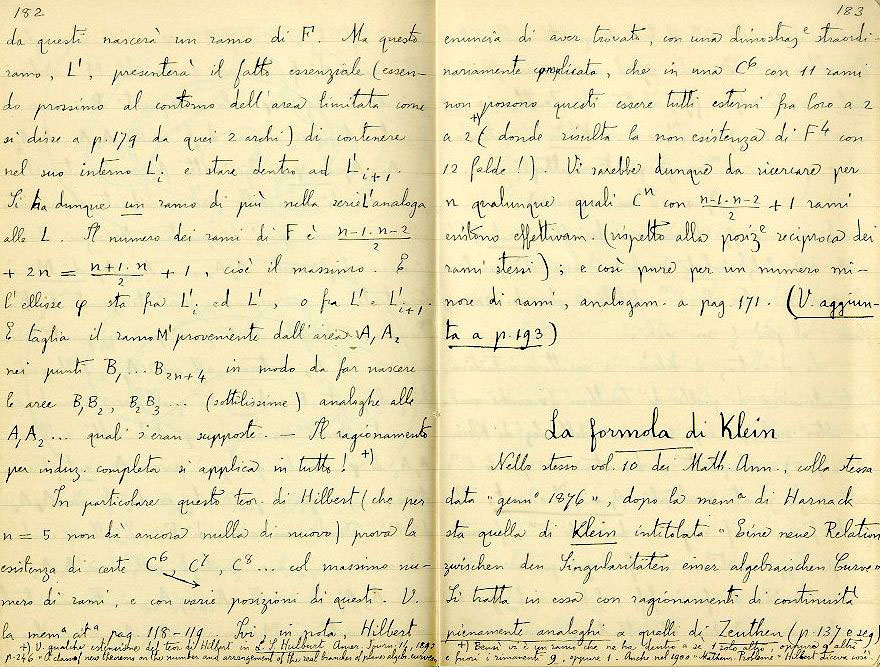 182
da questi nascerà un ramo di F. Ma questo
ramo, L', presenterà il fatto essenziale (essen-
do prossimo al contorno dell'area limitata come
si disse a p. 179 da quei 2 archi) di contenere
nel suo interno L'i e stare dentro ad L'i+1.
Si ha dunque un ramo di più nella serie L' analoga
alle L. Il numero dei rami di F è n-1.n-2/2
+ 2n = n+1.n/2 + 1, cioè il massimo. E
l'ellisse φ sta fra L'i ed L', o fra L' e L'i+1.
E taglia il ramo M' proveniente dall'area A1A2
nei punti B1... B2n+4 in modo da far nascere
le aree B1B2, B2B3... (sottilissime) analoghe alle
A1A2... quali s'eran supposte. — Il ragionamento
per induz. completa si applica in tutto! +)
In particolare questo teor. di Hilbert (che per
n = 5 non dà ancora nulla di nuovo) prova la
esistenza di certe C6, C7, C8... col massimo nu-
mero di rami, e con varie posizioni di questi. V.
la mema cita pag. 118-119. Ivi, in nota, Hilbert
+) V. qualche estensione del teor. di Hilbert in L. S. Hulburt Amer. Journ. 14, 1892
p. 246 "A class of new theorems on the number and arrangement of the real branches of plane algebr. curves"
183
enuncia di aver trovato, con una dimostraze straordi-
nariamente complicata, che in una C6 con 11 rami
non possono questi essere tutti esterni fra loro a 2
a 2 +) (donde risulta la non esistenza di F4 con
12 falde!). Vi sarebbe dunque da ricercare per
n qualunque quali Cn con n-1.n-2/2 + 1 rami
esistono effettivam. (rispetto alla posize reciproca dei
rami stessi); e così pure per un numero mi-
nore di rami, analogam. a pag. 171. (V. aggiun-
ta a p. 193)
La formola di Klein
Nello stesso vol. 10 dei Math. Ann., colla stessa
data "genno 1876", dopo la mema di Harnack
sta quella di Klein intitolata "Eine neue Relation
zwischen den Singularitäten einer algebraischen Curve"
Si tratta in essa con ragionamenti di continuità
pienamente analoghi a quelli di Zeuthen (p. 137 e seg)
+) Bensì vi è un ramo che ne ha dentro a sè 1 solo altro, oppure 9 altri,
e fuori i rimanenti 9, oppure 1. Anche nel 1900 "Mathem. Probleme" Hilbert diceva così